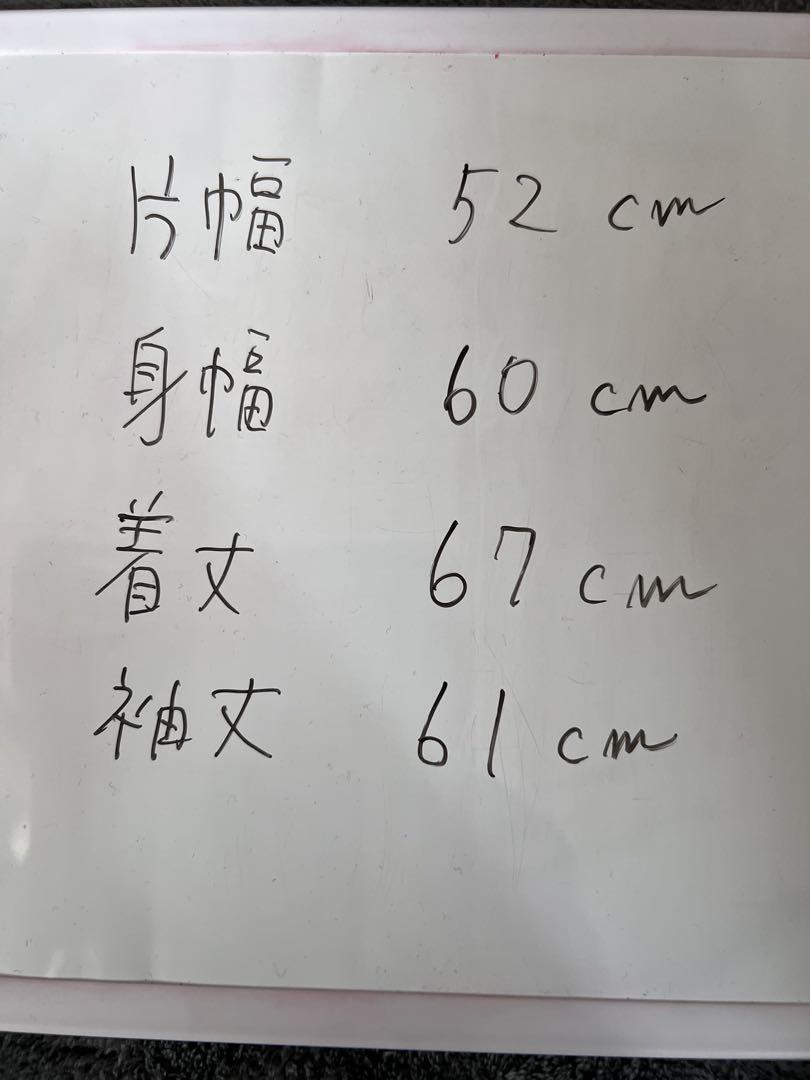 片幅 52 cm
身幅 60 cm
着丈 67 cm
袖丈 61 cm